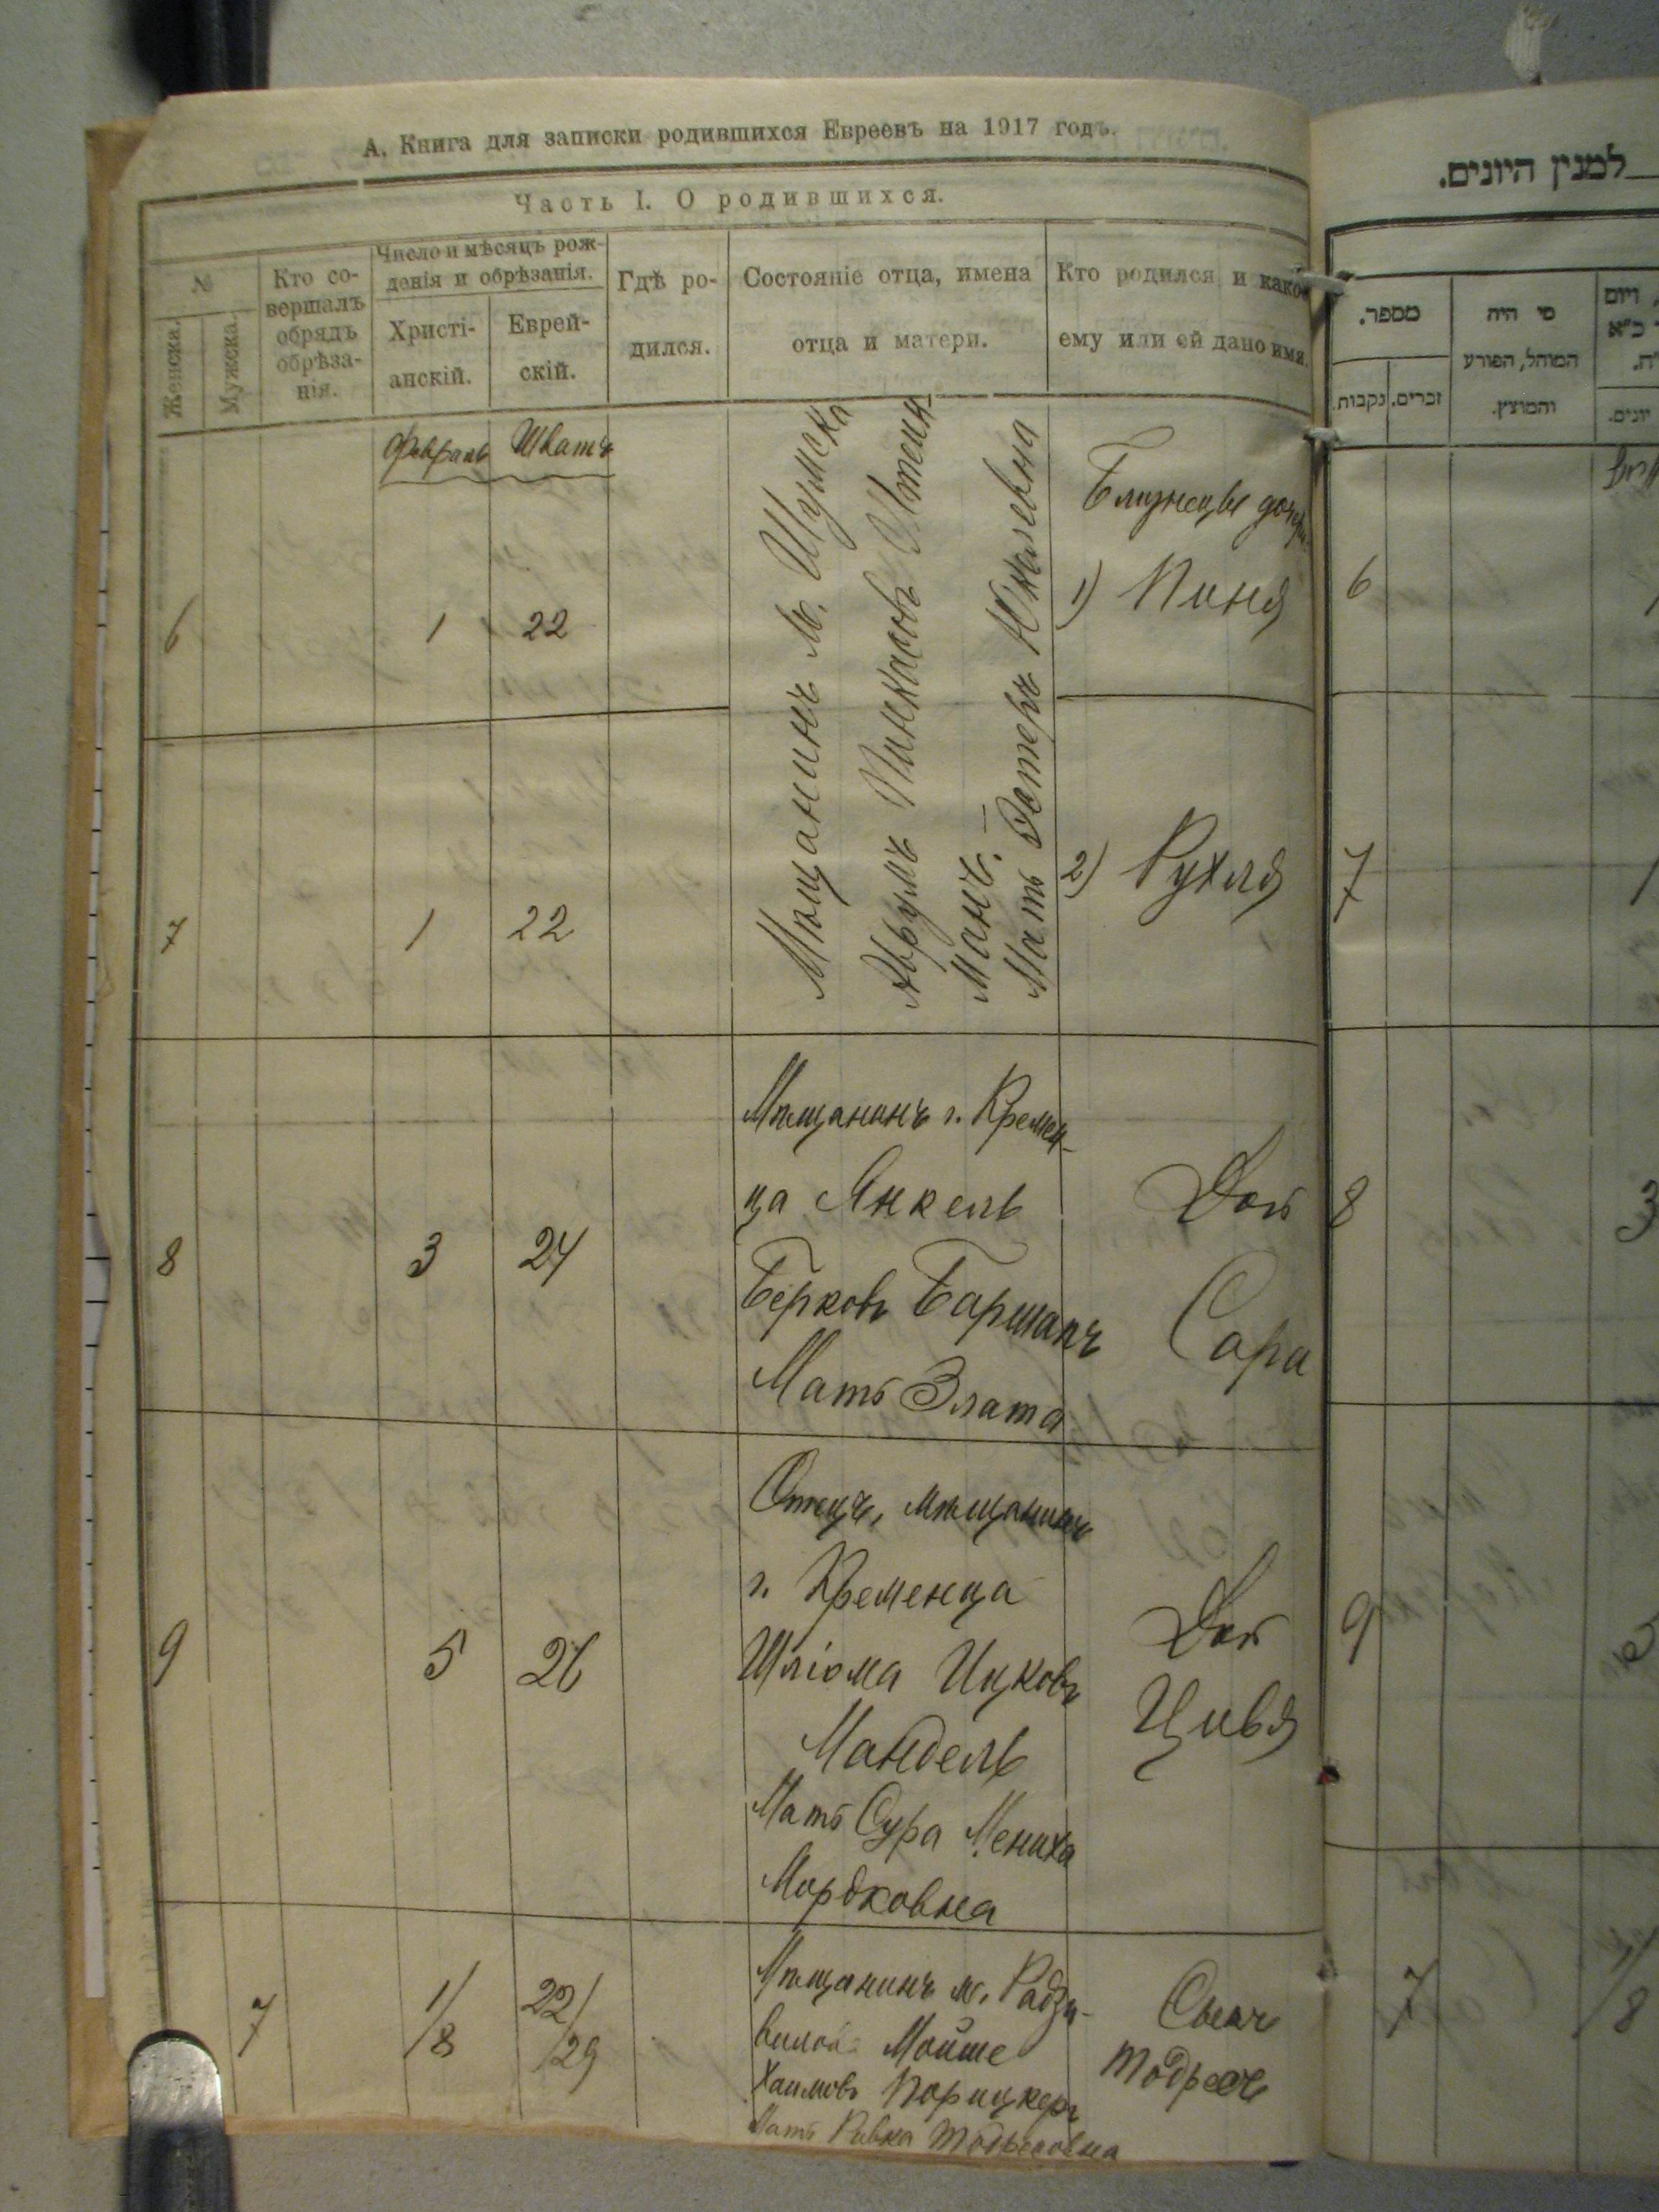 А. Книга для записки родившихся Евреевъ на 1917 годъ.
Часть I. О родившихся.
№
Женска.
Мужска.
Кто со-
вершалъ
обрядъ
обрѣза-
нія.
Число и мѣсяцъ рож-
денія и обрѣзанія.
Христі-
анскій.
Еврей-
скій.
Гдѣ ро-
дился.
Состояніе отца, имена
отца и матери.
Кто родился и какое
ему или ей дано имя.
Февраль Шватъ
6 1 22
Мѣщанинъ м. Шумска
Аврумъ Пинкасовъ Штейн
манъ. —
Мать Эстеръ Юкелевна
Близнецы дочери
1) Пиня
7 1 22
2) Рухля
8 3 24
Мѣщанинъ г. Кремен-
ца Янкель
Берковъ Баршапъ
Мать Злата
Дочь
Сара
9 5 26
Отецъ, мѣщанинъ
г. Кременца
Шліома Ицковъ
Мандель
Мать Сура Мениха
Мордковна
Дочь
Цивя
7 1/8 22/29
Мѣщанинъ м. Радзи-
вилова Мойше
Хаимовъ Порицкеръ
Мать Ривка Тодресовна
Сынъ
Тодресъ
למנין היונים.
מספר.
נקבות.
זכרים.
מי היה
המוהל, הפורע
והמוצץ.
ויום
יונים.
6
7
8 3
9
7 1/8